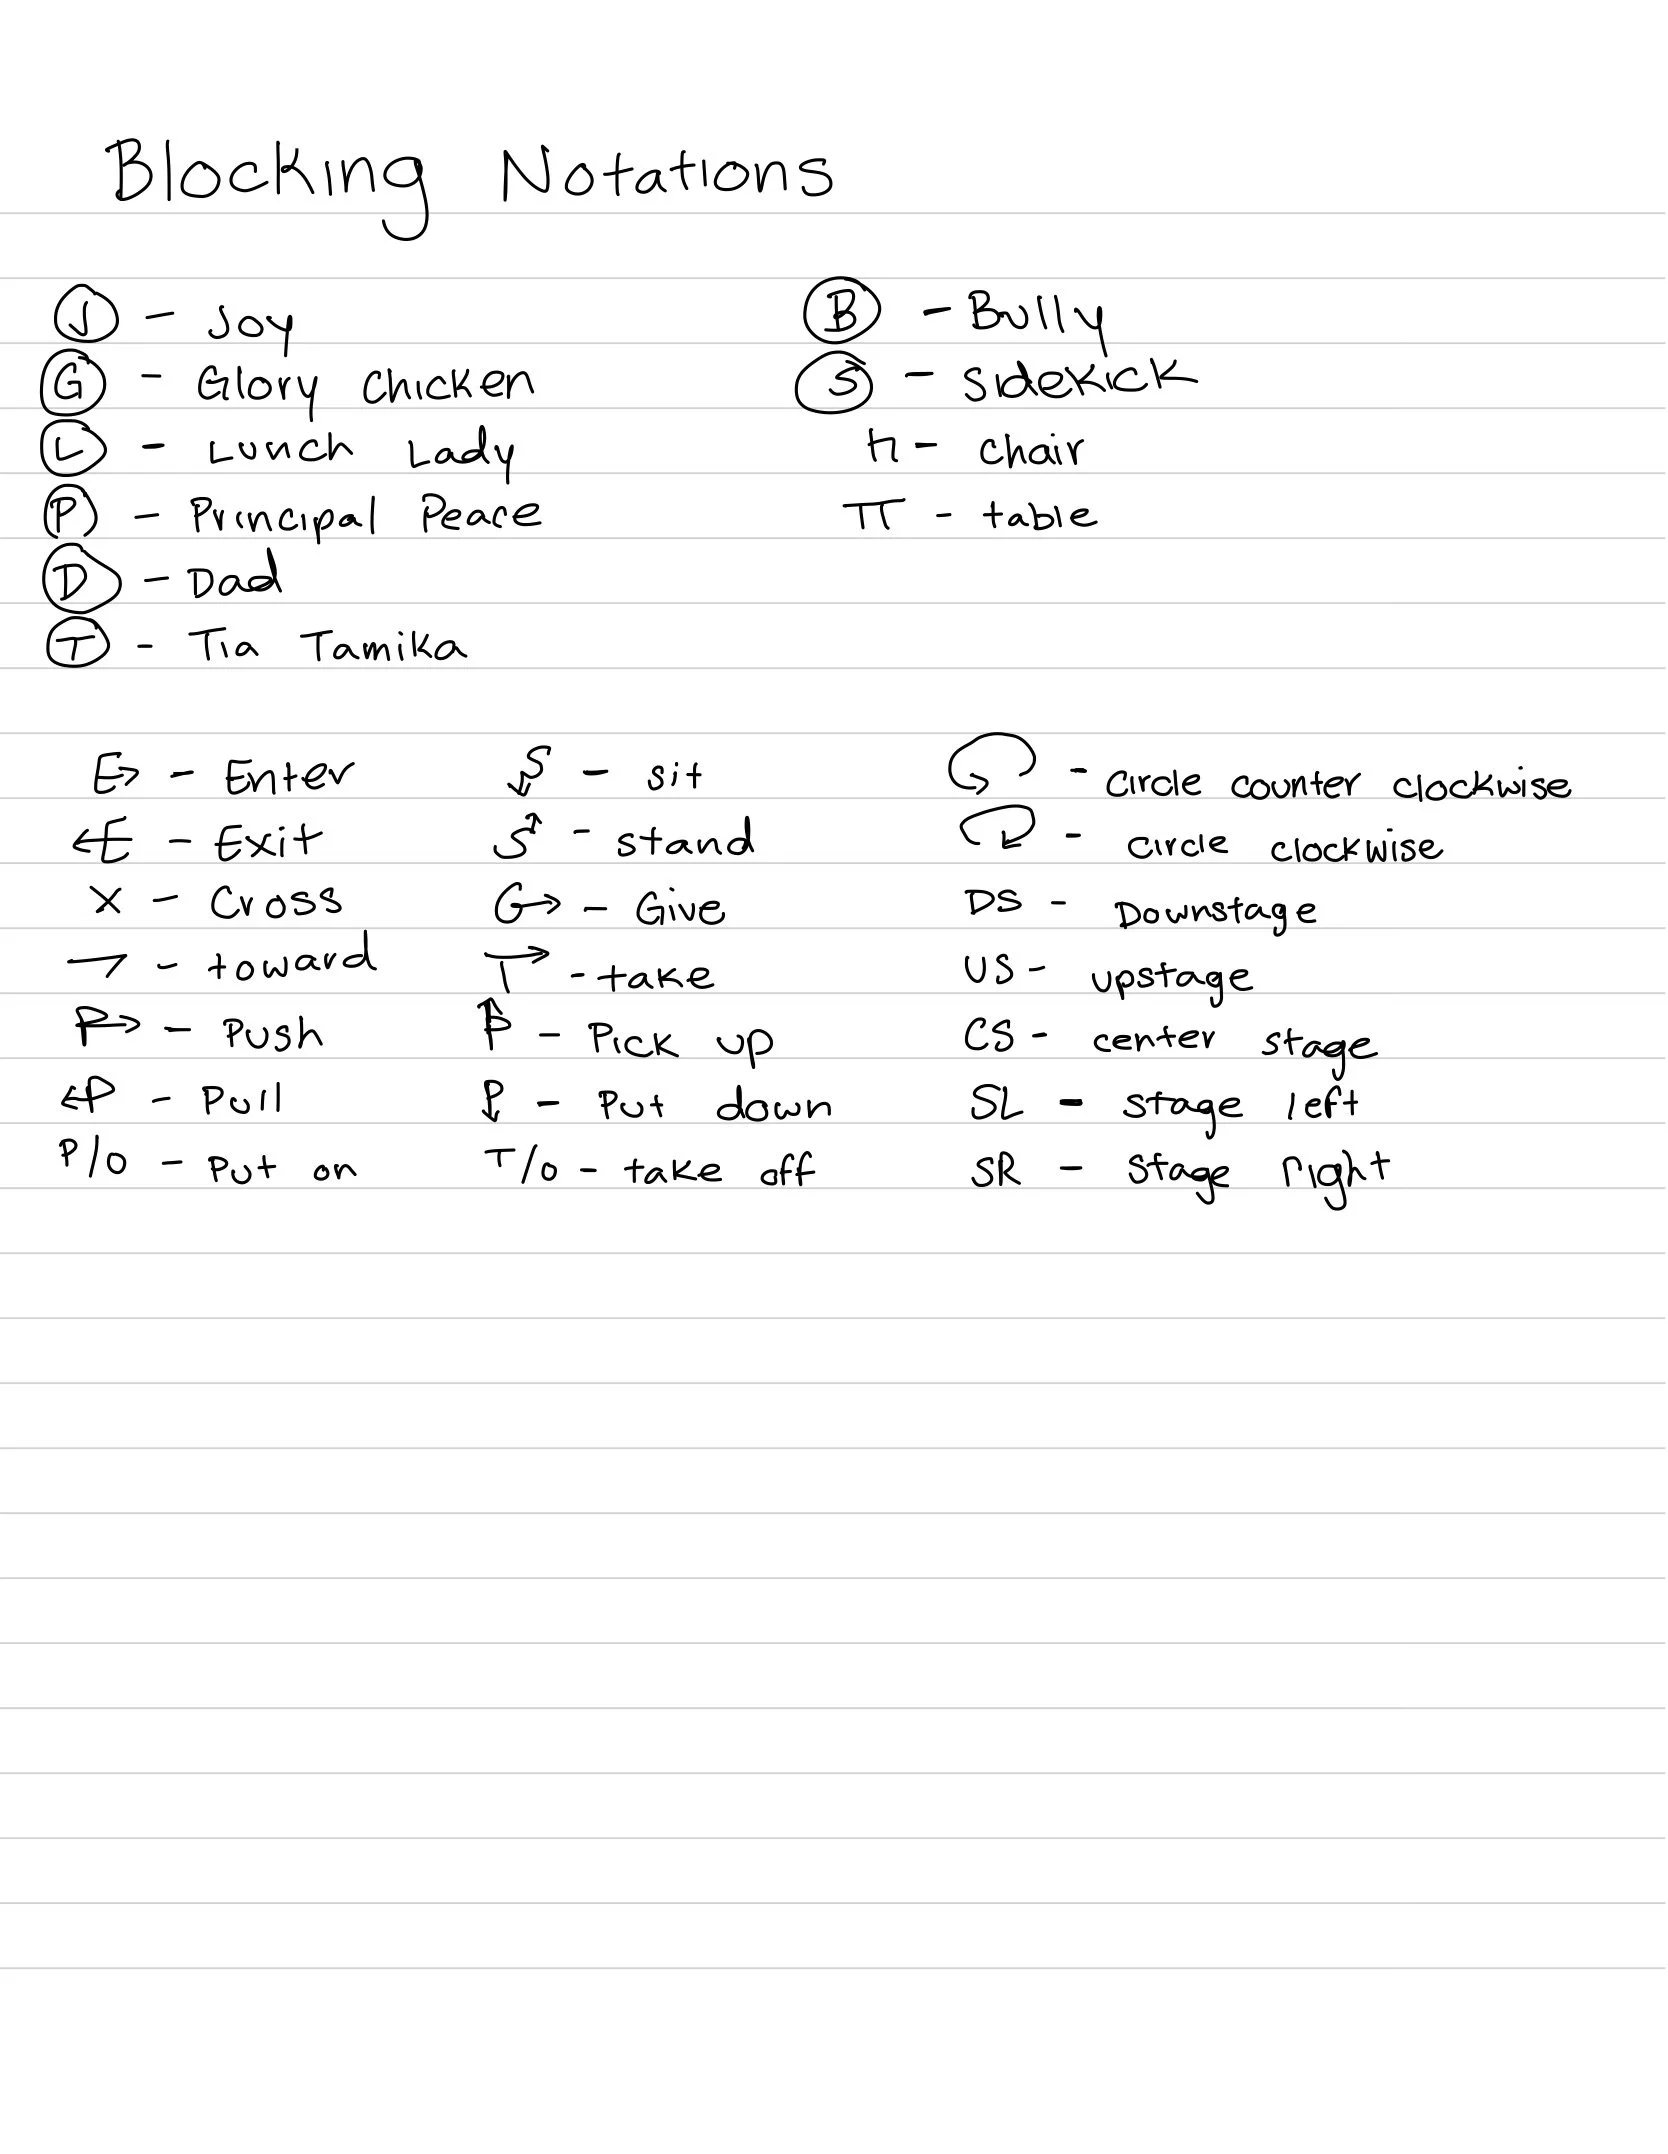 Blocking Notations
J - Joy
G - Glory Chicken
L - Lunch Lady
P - Principal Peace
D - Dad
T - Tia Tamika
B - Bully
S - Sidekick
h - chair
π - table
E→ - Enter
←E - Exit
X - Cross
⇀ - toward
P→ - Push
←P - Pull
P/O - Put on
S↓ - sit
S↑ - stand
G→ - Give
T→ - take
P↑ - Pick up
P↓ - Put down
T/O - take off
↺ - circle counter clockwise
↻ - circle clockwise
DS - Downstage
US - upstage
CS - center stage
SL - stage left
SR - stage right